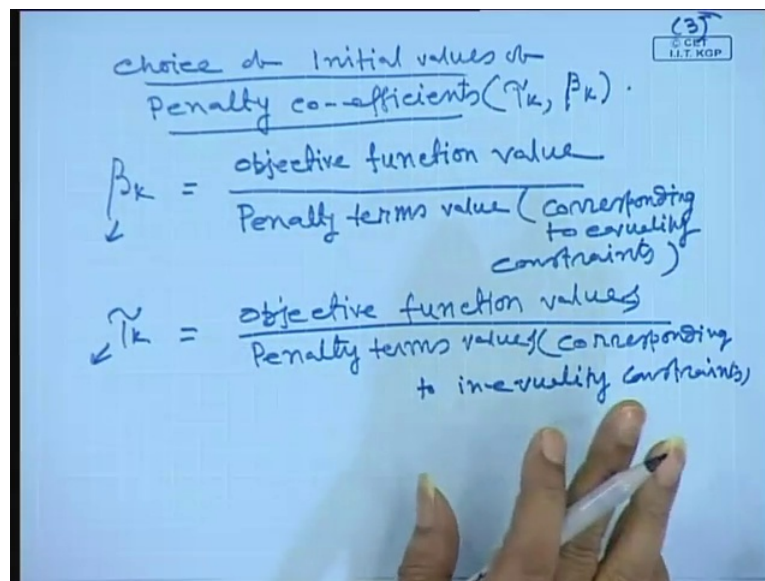 (3)
© CET
I.I.T. KGP
choice of Initial values of
Penalty co-efficients (r̃k, βk).
βk = objective function value
Penalty terms value (corresponding
to equality
constraints)
r̃k = objective function values
Penalty terms values (corresponding
to in-equality constraints)